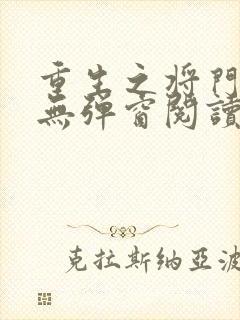 重生之将門
無彈窗閱讀
克拉斯纳亚波